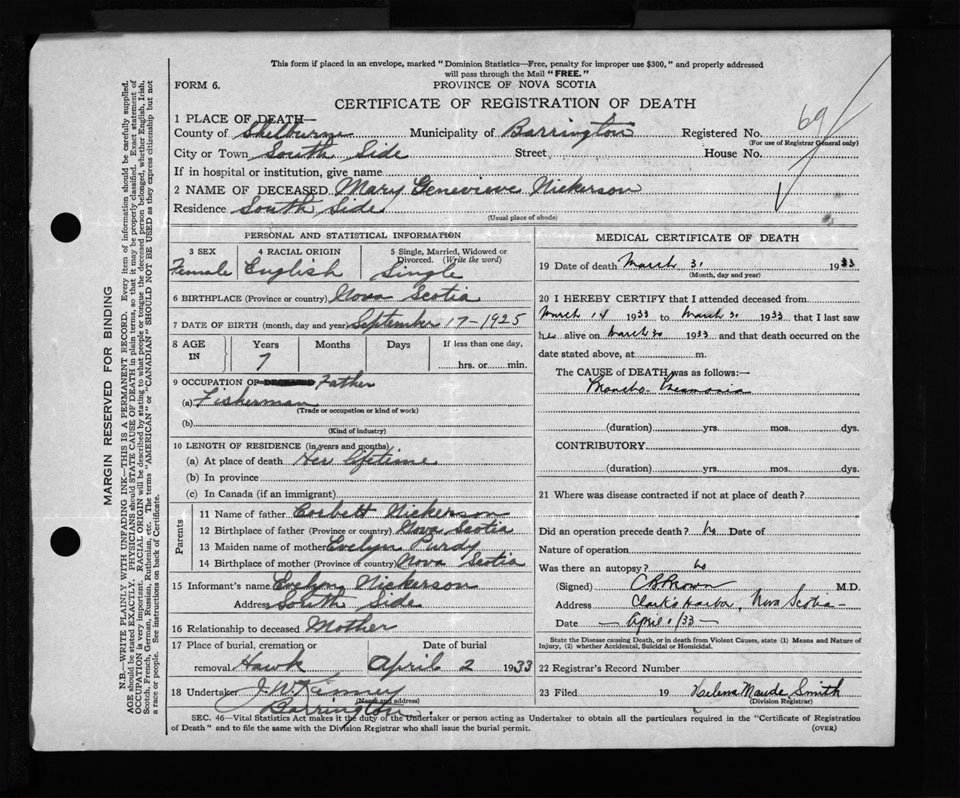 This form if placed in an envelope, marked "Dominion Statistics—Free, penalty for improper use $300," and properly addressed
will pass through the Mail "FREE."
FORM 6.
PROVINCE OF NOVA SCOTIA
CERTIFICATE OF REGISTRATION OF DEATH
69
1 PLACE OF DEATH—
County of Shelburne Municipality of Barrington Registered No.
(For use of Registrar General only)
City or Town South Side Street House No.
If in hospital or institution, give name
2 NAME OF DECEASED Mary Genevieve Nickerson
Residence South Side
(Usual place of abode)
PERSONAL AND STATISTICAL INFORMATION
3 SEX 4 RACIAL ORIGIN 5 Single, Married, Widowed or Divorced. (Write the word)
Female English Single
6 BIRTHPLACE (Province or country) Nova Scotia
7 DATE OF BIRTH (month, day and year) September 17-1925
8 AGE IN Years Months Days If less than one day,
7 hrs. or min.
9 OCCUPATION OF DECEASED Father
(a) Fisherman
(Trade or occupation or kind of work)
(b)
(Kind of industry)
10 LENGTH OF RESIDENCE (in years and months)
(a) At place of death Her lifetime
(b) In province
(c) In Canada (if an immigrant)
Parents
11 Name of father Corbett Nickerson
12 Birthplace of father (Province or country) Nova Scotia
13 Maiden name of mother Evelyn Purdy
14 Birthplace of mother (Province or country) Nova Scotia
15 Informant's name Evelyn Nickerson
Address South Side
16 Relationship to deceased Mother
17 Place of burial, cremation or Date of burial
removal Hawk April 2 1933
18 Undertaker J. W. Kinney
(Name and address)
Barrington
MEDICAL CERTIFICATE OF DEATH
19 Date of death March 31 1933
(Month, day and year)
20 I HEREBY CERTIFY that I attended deceased from
March 14 1933 to March 31 1933 that I last saw
h alive on March 30 1933 and that death occurred on the
date stated above, at m.
The CAUSE of DEATH was as follows:—
Broncho-Pneumonia
(duration) yrs. mos. dys.
CONTRIBUTORY
(duration) yrs. mos. dys.
21 Where was disease contracted if not at place of death?
Did an operation precede death? No Date of
Nature of operation
Was there an autopsy? No
(Signed) C B Brown M.D.
Address Clark's Harbor, Nova Scotia-
Date — April 1/33 —
State the Disease causing Death, or in death from Violent Causes, state (1) Means and Nature of
Injury, (2) whether Accidental, Suicidal or Homicidal.
22 Registrar's Record Number
23 Filed 19 Maude Smith
(Division Registrar)
SEC. 46—Vital Statistics Act makes it the duty of the Undertaker or person acting as Undertaker to obtain all the particulars required in the "Certificate of Registration
of Death" and to file the same with the Division Registrar who shall issue the burial permit.
(OVER)
MARGIN RESERVED FOR BINDING
N.B.—WRITE PLAINLY WITH UNFADING INK—THIS IS A PERMANENT RECORD. Every item of information should be carefully supplied.
AGE should be stated EXACTLY. PHYSICIANS should STATE CAUSE OF DEATH in plain terms, so that it may be properly classified. Exact statement of
OCCUPATION is very important. RACIAL ORIGIN will be described by stating to what people or tongue the deceased person belonged, whether English, Irish,
Scotch, French, German, Russian, Ruthenian, etc. The terms "AMERICAN" or "CANADIAN" SHOULD NOT BE USED as they express citizenship but not
a race or people. See instructions on back of Certificate.